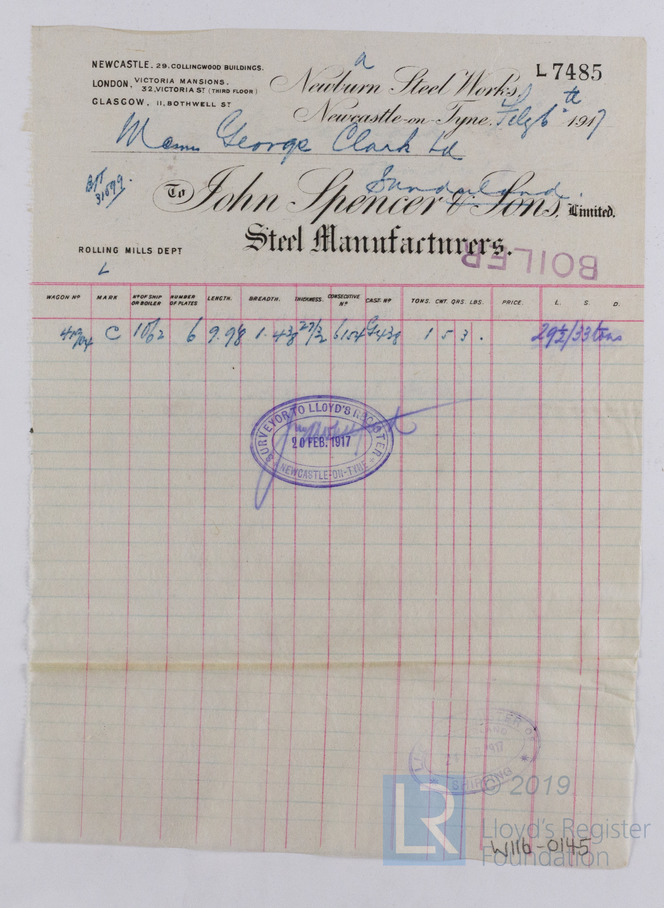 NEWCASTLE. 29. COLLINGWOOD BUILDINGS.
LONDON, VICTORIA MANSIONS.
32, VICTORIA ST (THIRD FLOOR)
GLASGOW, 11, BOTHWELL ST
a
L 7485
Newburn Steel Works,
Newcastle-on-Tyne, Feby 6th 1917
Messrs George Clark Ld
Sunderland.
To John Spencer & Sons, Limited.
Steel Manufacturers.
BOILER
ROLLING MILLS DEPT
L
WAGON No MARK No OF SHIP OR BOILER NUMBER OF PLATES LENGTH. BREADTH. THICKNESS. CONSECUTIVE No CAST. No TONS. CWT. QRS. LBS. PRICE. L. S. D.
C 1062 6 9.98 1.438 27/32 6154 G438 1 5 3 . 29½/33 tons
SURVEYOR TO LLOYD'S REGISTER
20 FEB. 1917
NEWCASTLE-ON-TYNE
1917
SHIPPING
© 2019
LR Lloyd's Register
Foundation
W116-0145